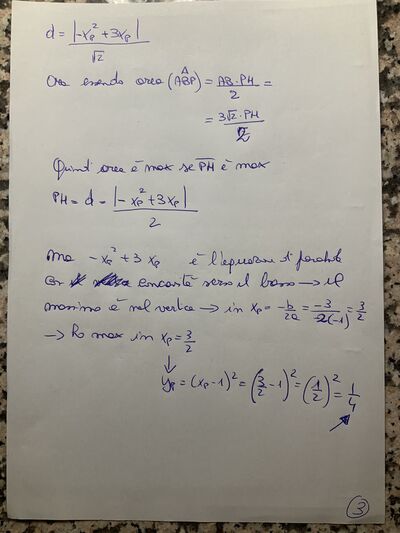 d = |-x_P² + 3x_P| / √2
Ora essendo area (ABP) = AB · PH / 2 =
= 3√2 · PH / 2
Quindi area è max se PH è max
PH = d = |-x_P² + 3x_P| / 2
Ma -x_P² + 3x_P è l'equazione di parabola
con concavità verso il basso → il
massimo è nel vertice → in x_P = -b/2a = -3/2(-1) = 3/2
→ Ho max in x_P = 3/2
↓
y_P = (x_P - 1)² = (3/2 - 1)² = (1/2)² = 1/4
3